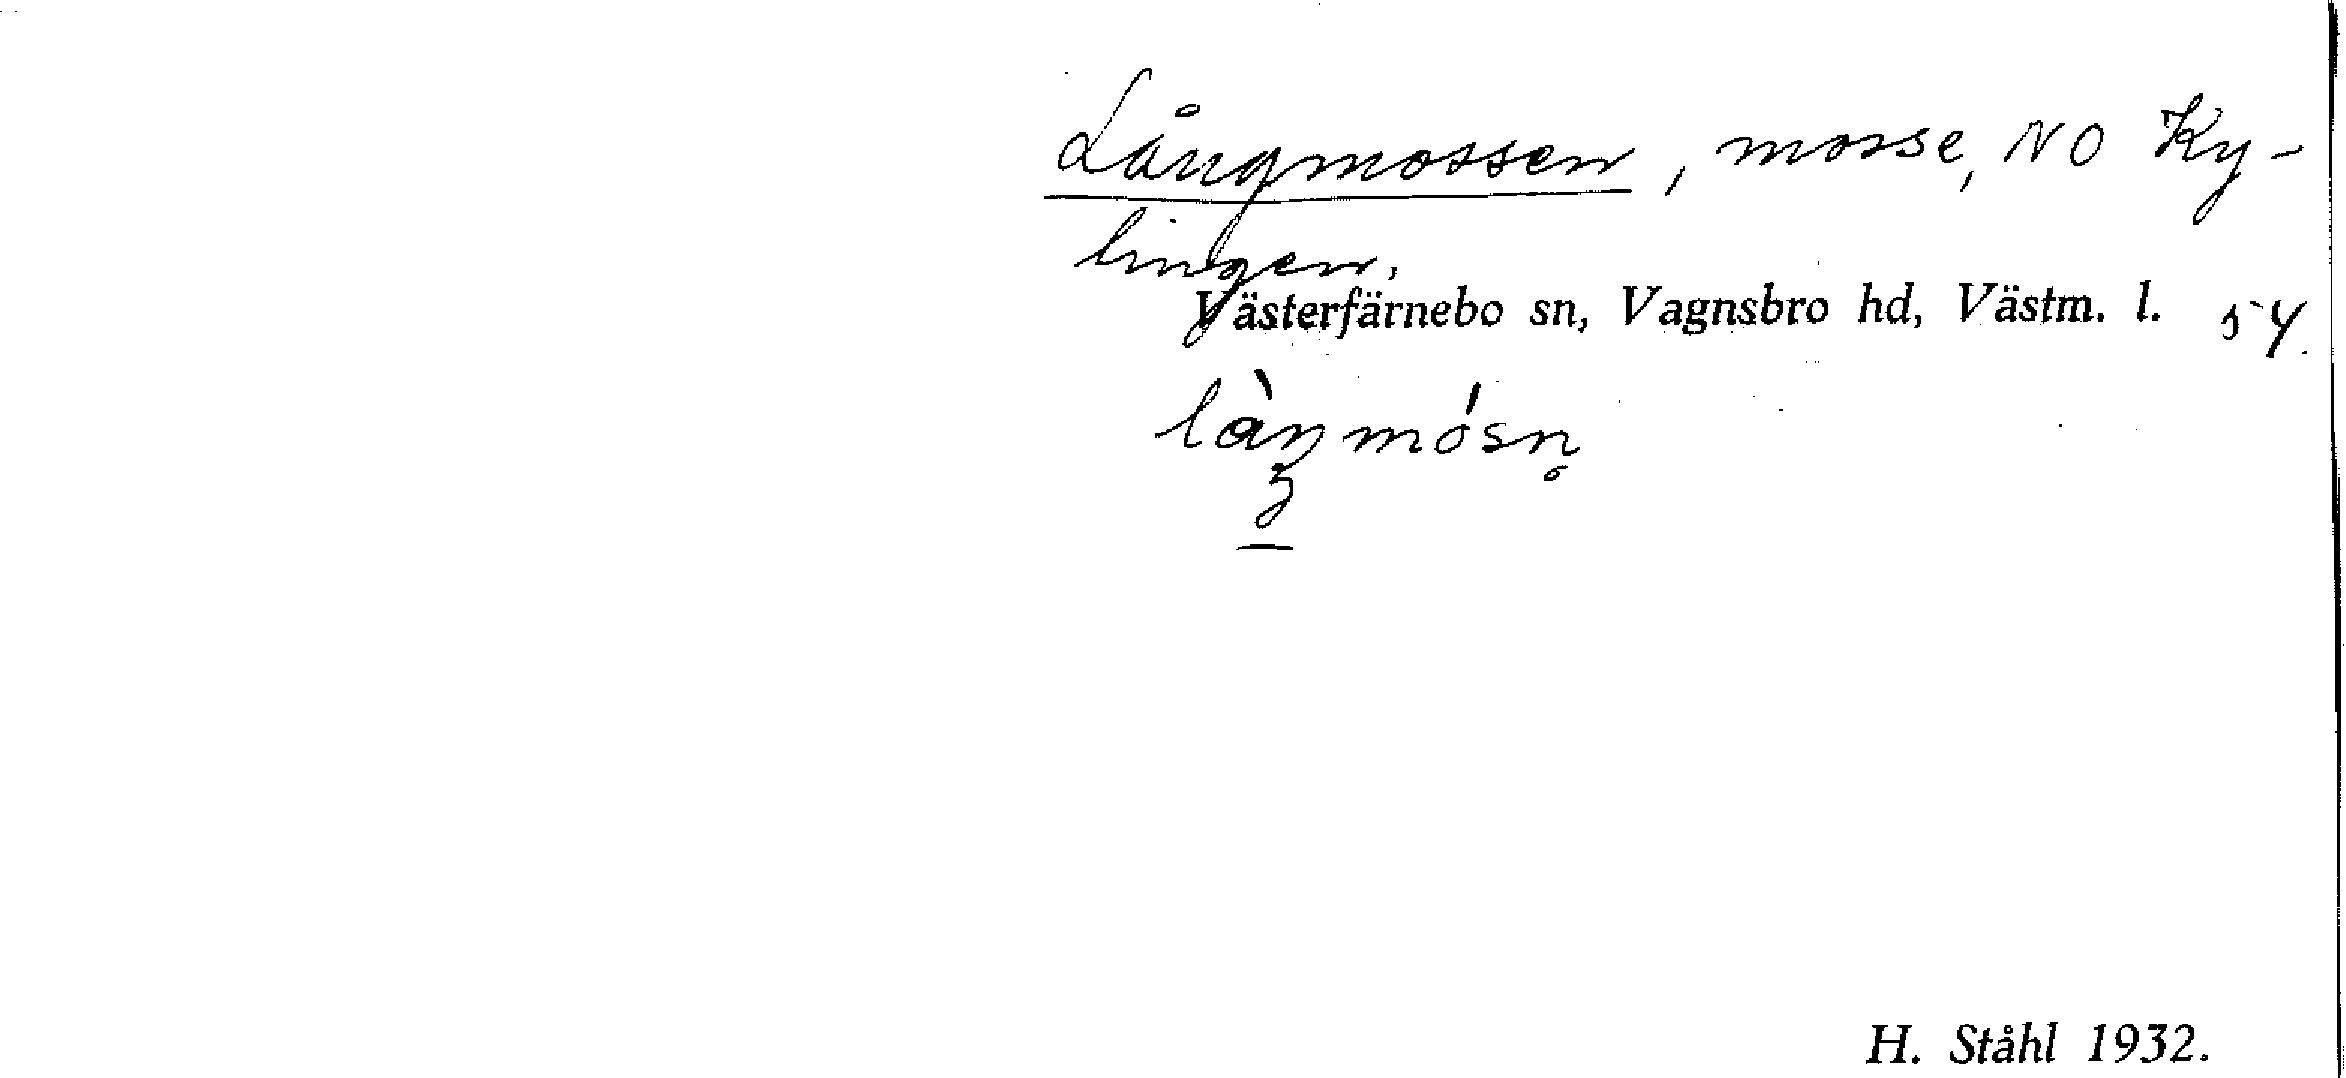 Långmossen, mosse, NO Ky-
lingen.
Västerfärnebo sn, Vagnsbro hd, Västm. l. 54.
làŋmósn̥
H. Ståhl 1932.